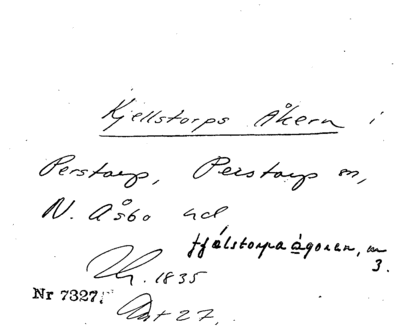 Kjellstorps Åkern i
Perstorp, Perstorp sn,
N. Åsbo hd
fjälstorpaågonen, m
3.
1835
Nr 7327.
Akt 27.